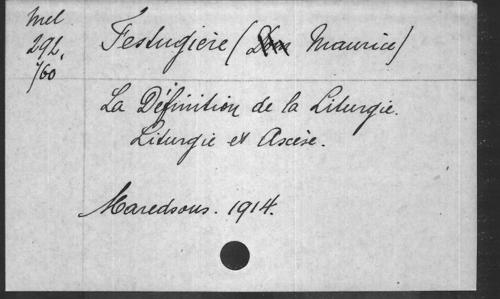 Mel
292,
/60
Festugière (Dom Maurice)
La Définition de la Liturgie.
Liturgie et Ascèse.
Maredsous. 1914.